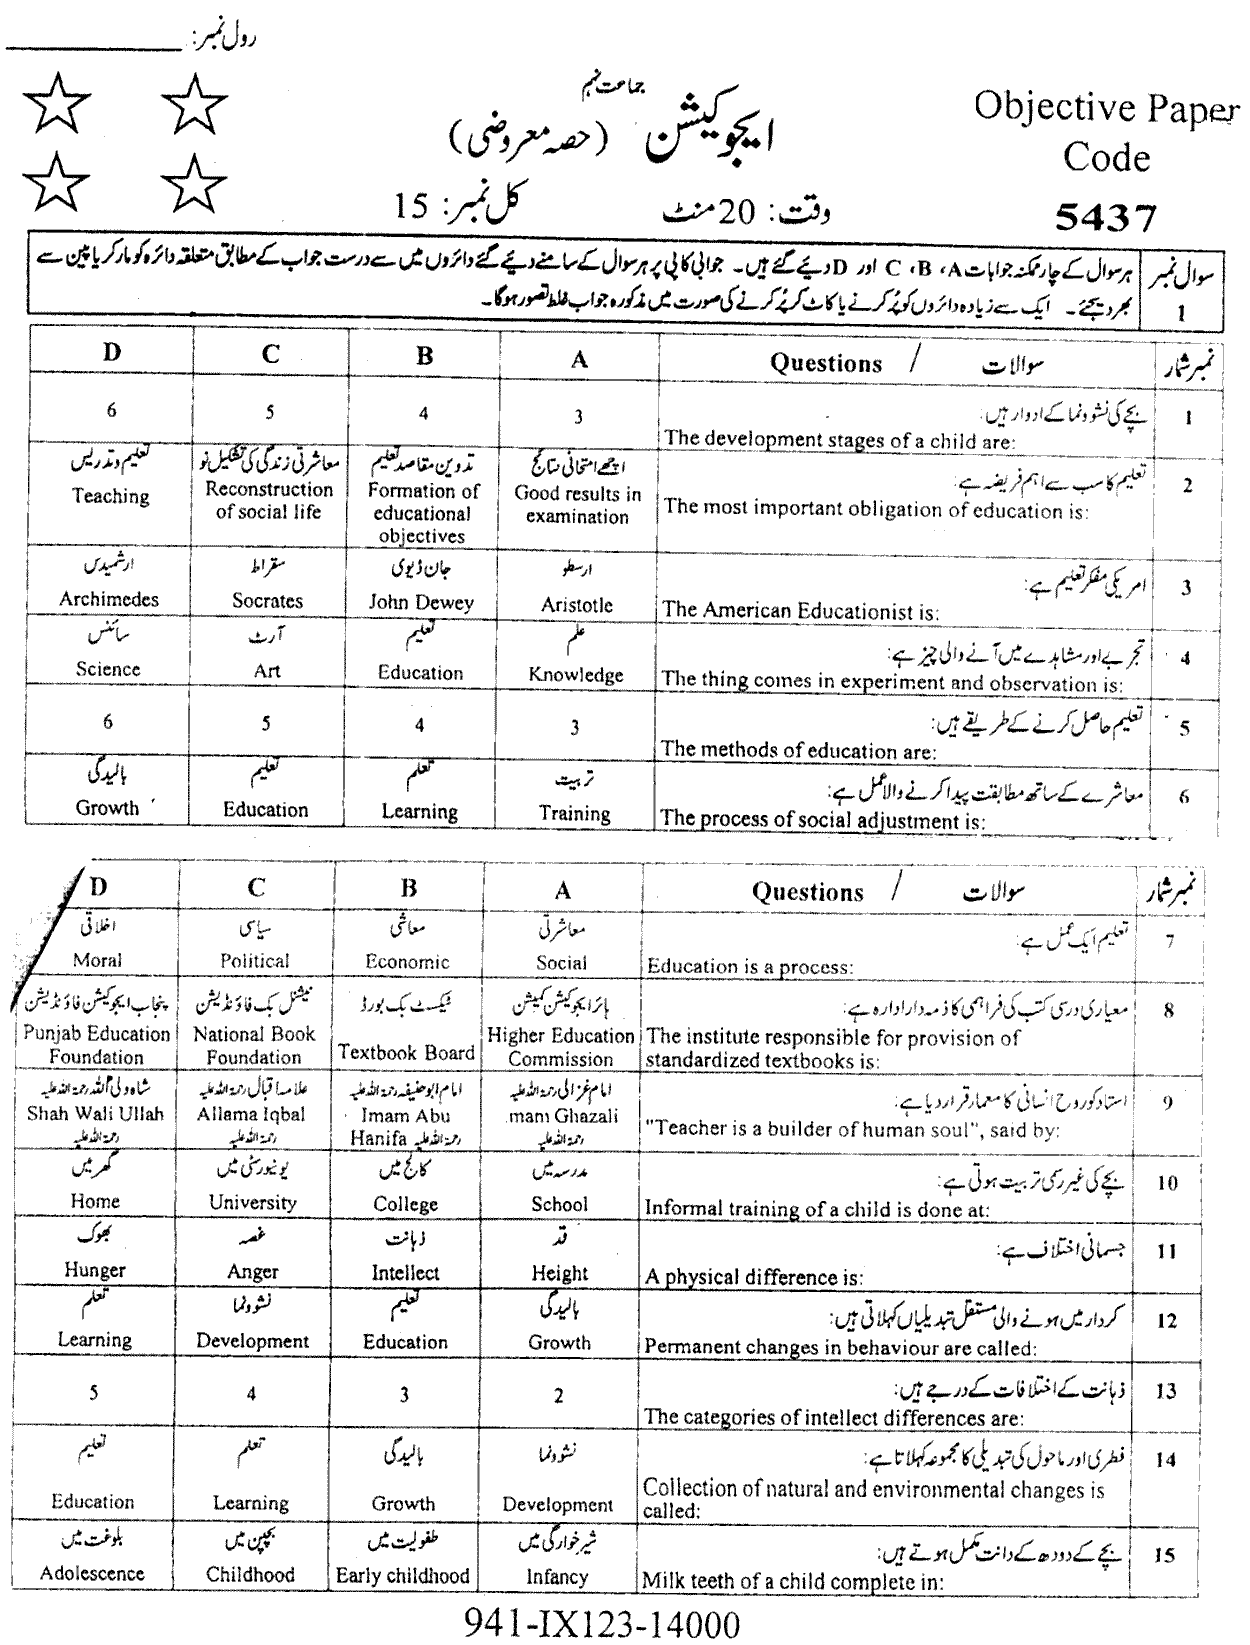 رول نمبر:
جماعت نہم
ایجوکیشن (حصہ معروضی)
وقت: 20 منٹ کل نمبر: 15
Objective Paper
Code
5437
سوال نمبر 1
ہر سوال کے چار ممکنہ جوابات A، B، C اور D دیئے گئے ہیں۔ جوابی کاپی پر ہر سوال کے سامنے دیئے گئے دائروں میں سے درست جواب کے مطابق متعلقہ دائرہ کو مارکر یا پین سے
بھر دیجئے۔ ایک سے زیادہ دائروں کو پُر کرنے یا کاٹ کر پُر کرنے کی صورت میں مذکورہ جواب غلط تصور ہوگا۔
نمبر شمار سوالات / Questions A B C D
1 بچے کی نشوونما کے ادوار ہیں:
The development stages of a child are:
3 4 5 6
2 تعلیم کا سب سے اہم فریضہ ہے:
The most important obligation of education is:
اچھے امتحانی نتائج
Good results in
examination
تدوین مقاصد تعلیم
Formation of
educational
objectives
معاشرتی زندگی کی تشکیل نو
Reconstruction
of social life
تعلیم و تدریس
Teaching
3 امریکی مفکر تعلیم ہے:
The American Educationist is:
ارسطو
Aristotle
جان ڈیوی
John Dewey
سقراط
Socrates
ارشمیدس
Archimedes
4 تجربے اور مشاہدے میں آنے والی چیز ہے:
The thing comes in experiment and observation is:
علم
Knowledge
تعلیم
Education
آرٹ
Art
سائنس
Science
5 تعلیم حاصل کرنے کے طریقے ہیں:
The methods of education are:
3 4 5 6
6 معاشرے کے ساتھ مطابقت پیدا کرنے والا عمل ہے:
The process of social adjustment is:
تربیت
Training
تعلم
Learning
تعلیم
Education
بالیدگی
Growth
نمبر شمار سوالات / Questions A B C D
7 تعلیم ایک عمل ہے:
Education is a process:
معاشرتی
Social
معاشی
Economic
سیاسی
Political
اخلاقی
Moral
8 معیاری درسی کتب کی فراہمی کا ذمہ دار ادارہ ہے:
The institute responsible for provision of
standardized textbooks is:
ہائر ایجوکیشن کمیشن
Higher Education
Commission
ٹیکسٹ بک بورڈ
Textbook Board
نیشنل بک فاؤنڈیشن
National Book
Foundation
پنجاب ایجوکیشن فاؤنڈیشن
Punjab Education
Foundation
9 استاد کو روح انسانی کا معمار قرار دیا ہے:
"Teacher is a builder of human soul", said by:
امام غزالی رحمۃ اللہ علیہ
mam Ghazali
رحمۃ اللہ علیہ
امام ابو حنیفہ رحمۃ اللہ علیہ
Imam Abu
Hanifa رحمۃ اللہ علیہ
علامہ اقبال رحمۃ اللہ علیہ
Allama Iqbal
رحمۃ اللہ علیہ
شاہ ولی اللہ رحمۃ اللہ علیہ
Shah Wali Ullah
رحمۃ اللہ علیہ
10 بچے کی غیر رسمی تربیت ہوتی ہے:
Informal training of a child is done at:
مدرسہ میں
School
کالج میں
College
یونیورسٹی میں
University
گھر میں
Home
11 جسمانی اختلاف ہے:
A physical difference is:
قد
Height
ذہانت
Intellect
غصہ
Anger
بھوک
Hunger
12 کردار میں ہونے والی مستقل تبدیلیاں کہلاتی ہیں:
Permanent changes in behaviour are called:
بالیدگی
Growth
تعلیم
Education
نشوونما
Development
تعلم
Learning
13 ذہانت کے اختلافات کے درجے ہیں:
The categories of intellect differences are:
2 3 4 5
14 فطری اور ماحول کی تبدیلی کا مجموعہ کہلاتا ہے:
Collection of natural and environmental changes is
called:
نشوونما
Development
بالیدگی
Growth
تعلم
Learning
تعلیم
Education
15 بچے کے دودھ کے دانت مکمل ہوتے ہیں:
Milk teeth of a child complete in:
شیر خوارگی میں
Infancy
طفولیت میں
Early childhood
بچپن میں
Childhood
بلوغت میں
Adolescence
941-IX123-14000